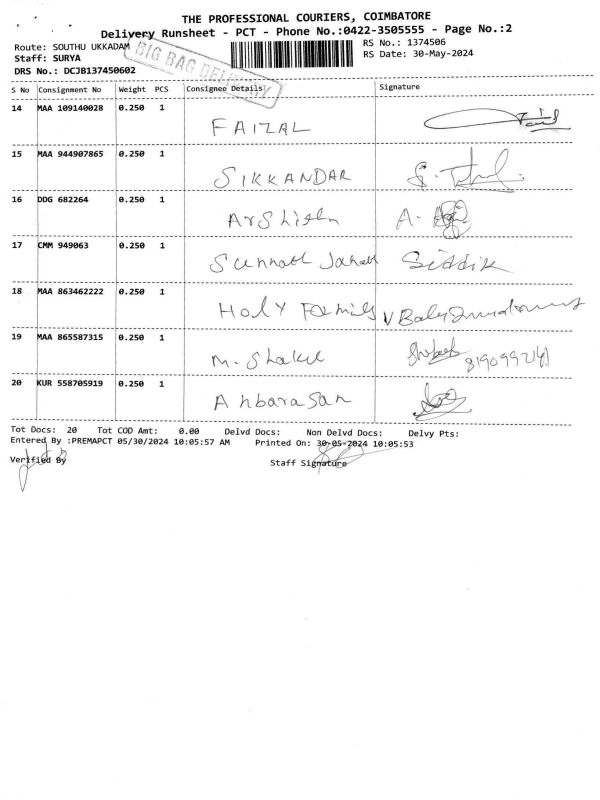 THE PROFESSIONAL COURIERS, COIMBATORE
Delivery Runsheet - PCT - Phone No.:0422-3505555 - Page No.:2
Route: SOUTHU UKKADAM
RS No.: 1374506
Staff: SURYA
RS Date: 30-May-2024
DRS No.: DCJB137450602
BIG BAG DELIVERY
S No Consignment No Weight PCS Consignee Details Signature
14 MAA 109140028 0.250 1 FAIZAL
15 MAA 944907865 0.250 1 SIKKANDAR
16 DDG 682264 0.250 1 A-
17 CMM 949063 0.250 1 Siddik
18 MAA 863462222 0.250 1 HOLY Family
19 MAA 865587315 0.250 1 M. Shakul
20 KUR 558705919 0.250 1 Anbarasan
Tot Docs: 20 Tot COD Amt: 0.00 Delvd Docs: Non Delvd Docs: Delvy Pts:
Entered By :PREMAPCT 05/30/2024 10:05:57 AM Printed On: 30-05-2024 10:05:53
Verified By Staff Signature